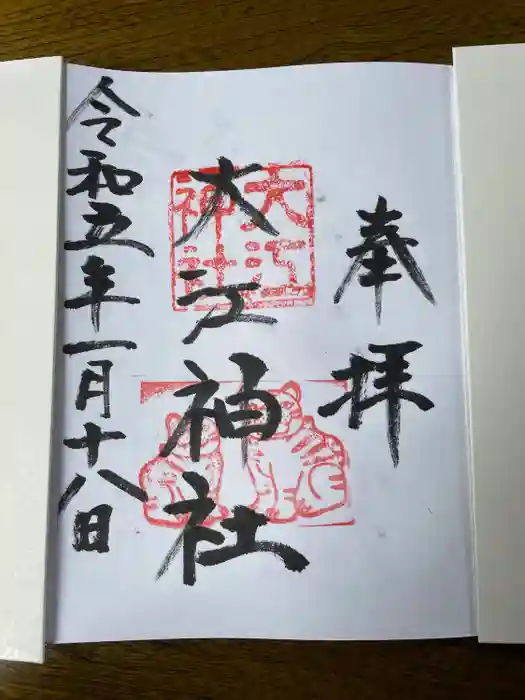 奉拝
大江神社
大江神社
令和五年一月十八日